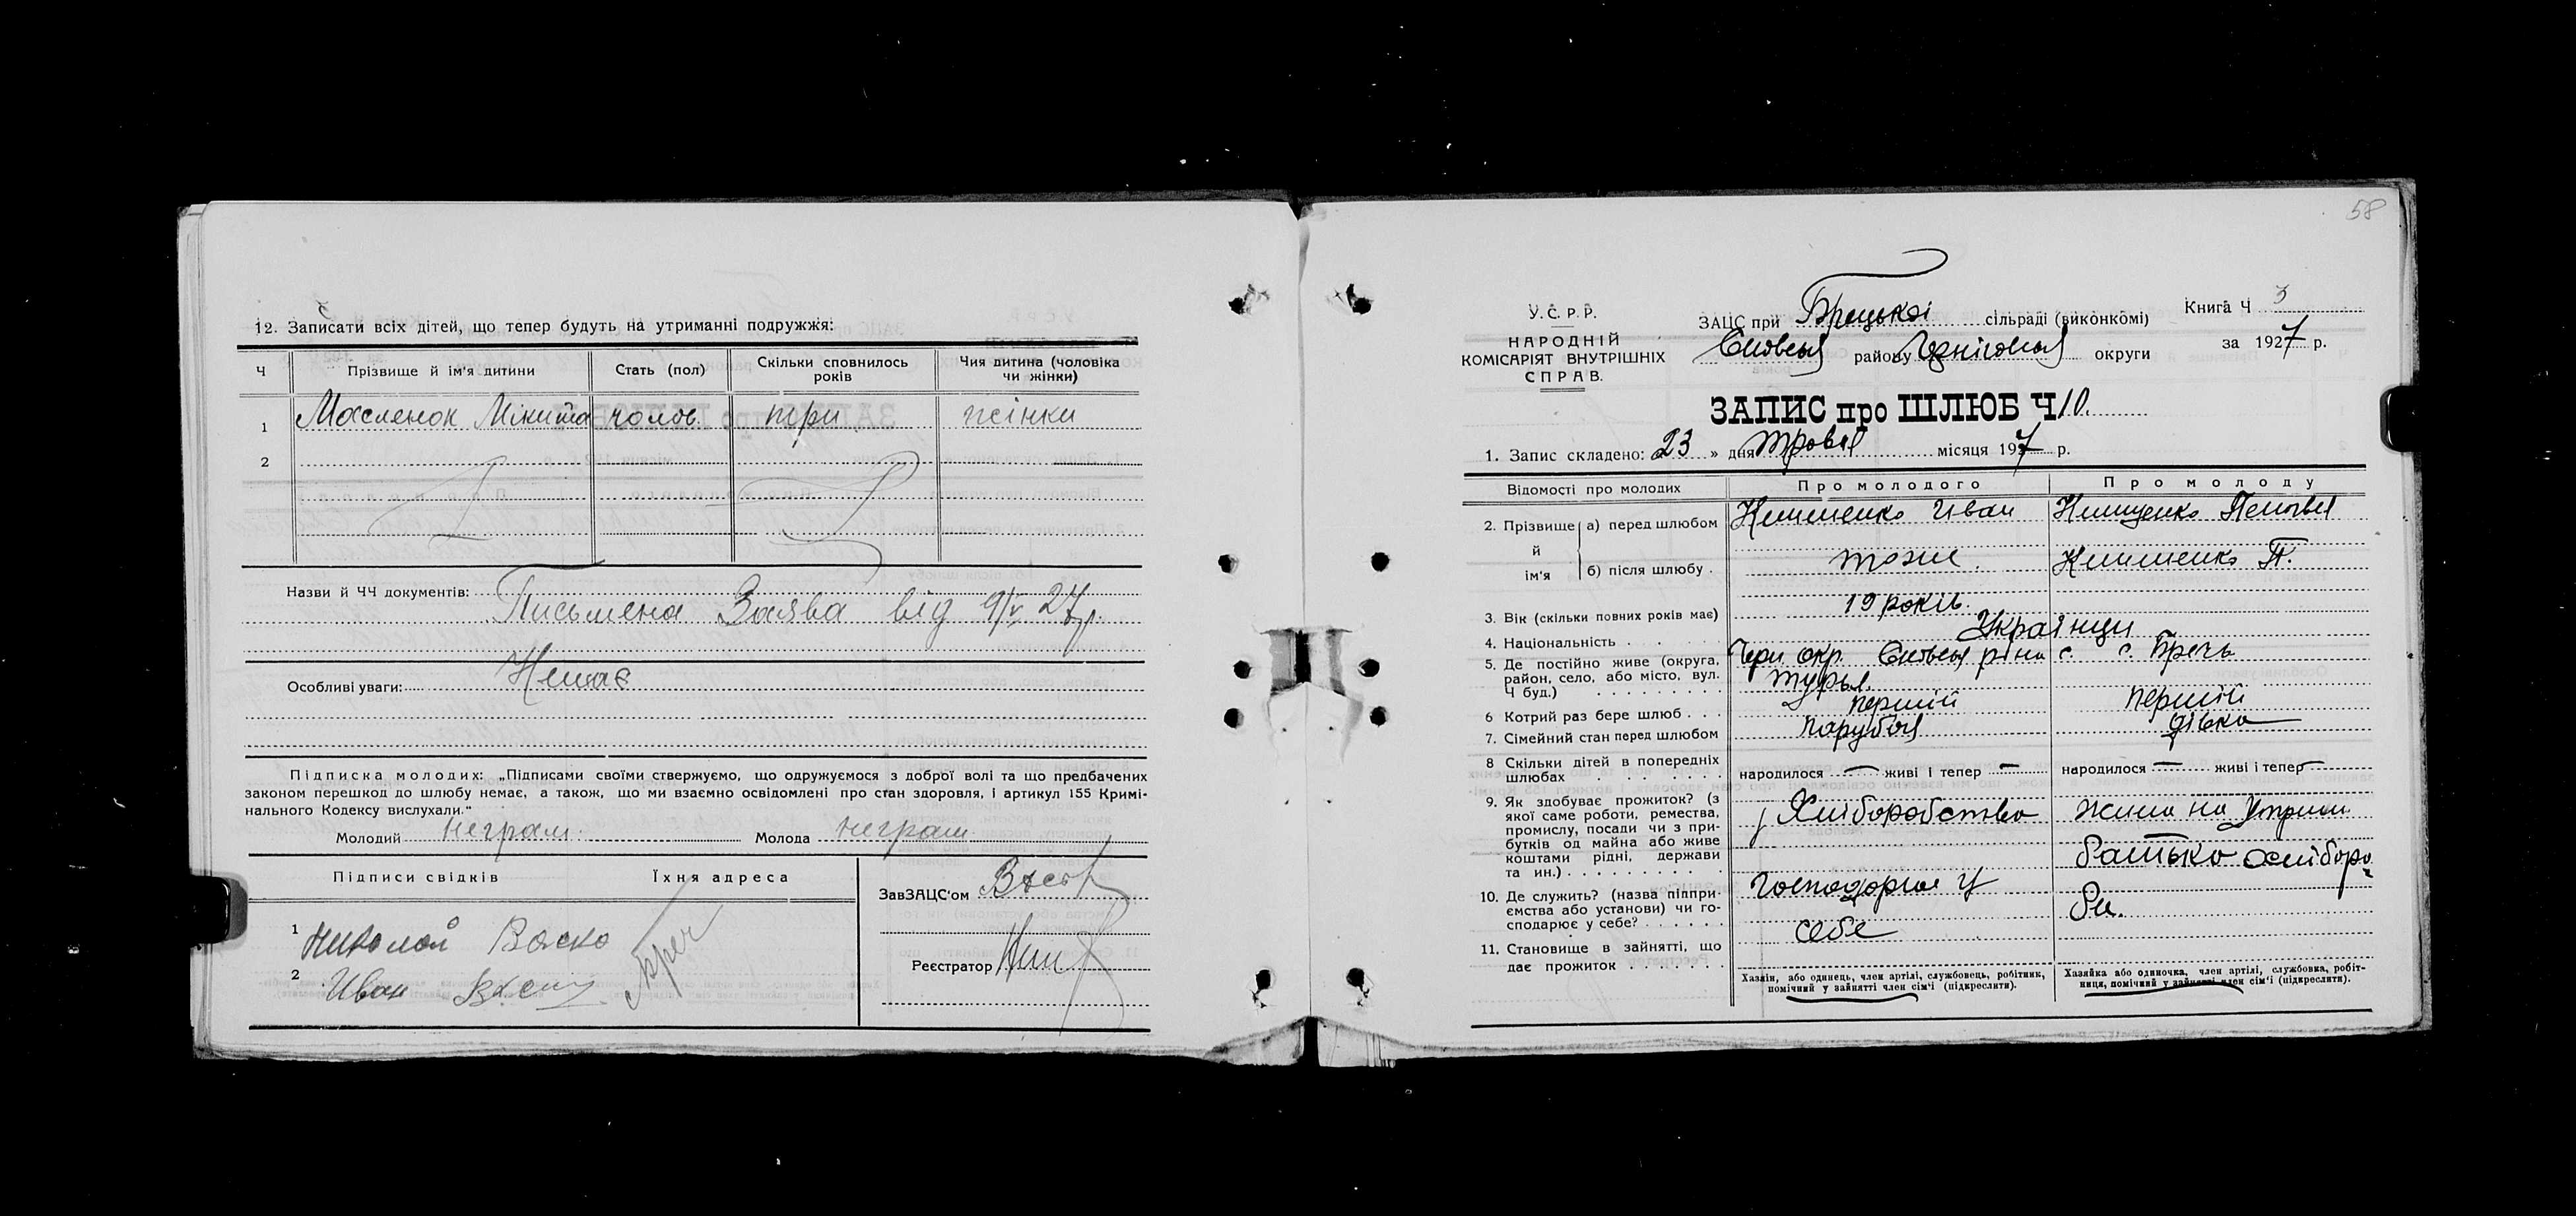 12. Записати всіх дітей, що тепер будуть на утриманні подружжя:
Ч Прізвище й ім'я дитини Стать (пол) Скільки сповнилось років Чия дитина (чоловіка чи жінки)
1 Масленок Микита чолов. три жінки
2
Назви й ЧЧ документів: Письмена Заява від 9/V 27 р.
Особливі уваги: Немає
Підписка молодих: „Підписами своїми стверджуємо, що одружуємося з доброї волі та що предбачених
законом перешкод до шлюбу немає, а також, що ми взаємно освідомлені про стан здоровля, і артикул 155 Кримі-
нального Кодексу вислухали."
Молодий неграм. Молода неграм
Підписи свідків Їхня адреса
1 Николай Васко
2 Иван
ЗавЗАЦС'ом
Реєстратор
58
У.С.Р.Р.
НАРОДНІЙ
КОМІСАРІЯТ ВНУТРІШНІХ
СПРАВ.
ЗАЦС при Брецької сільраді (виконкомі)
району округи
Книга Ч 3
за 1927 р.
ЗАПИС про ШЛЮБ Ч 10.
1. Запис складено: 23 » дня травня місяця 1927 р.
Відомості про молодих Про молодого Про молоду
2. Прізвище й ім'я а) перед шлюбом Клименко Иван
б) після шлюбу . тоже. Клименко П.
3. Вік (скільки повних років має) 19 років.
4. Національність . Українци
5. Де постійно живе (округа, район, село, або місто, вул. Ч буд.) Черн. окр. с. Турья. с. Бречь
6 Котрий раз бере шлюб . . . перший перший
7. Сімейний стан перед шлюбом парубок дівка
8 Скільки дітей в попередніх шлюбах народилося — живі і тепер — народилося — живі і тепер —
9. Як здобуває прожиток? (з
якої саме роботи, ремества,
промислу, посади чи з при-
бутків од майна або живе
коштами рідні, держави
та ин.) Хліборобство жила на утрим
батько
10. Де служить? (назва підпри-
ємства або установи) чи го-
сподарює у себе? Господарює у
себе
11. Становище в зайнятті, що
дає прожиток
Хазяїн, або одинець, член артілі, службовець, робітник,
помічний у зайнятті член сім'ї (підкреслити).
Хазяйка або одиночка, член артілі, службовка, робіт-
ниця, помічний у зайнятті член сім'ї (підкреслити).